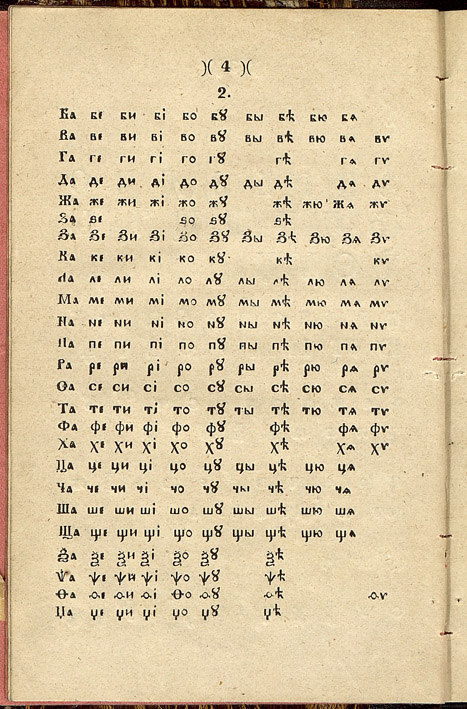 )( 4 )(
2.
Ба бе би бі бо бꙋ бы бѣ бю бѧ
Ва ве ви ві во вꙋ вы вѣ вю вѧ вѵ
Га ге ги гі го гꙋ гѣ гѧ гѵ
Да де ди ді до дꙋ ды дѣ дѧ дѵ
Жа же жи жі жо жꙋ жѣ жю жѧ жѵ
Ѕа ѕе ѕо ѕꙋ ѕѣ
За зе зи зі зо зꙋ зы зѣ зю зѧ зѵ
Ка ке ки кі ко кꙋ кѣ кѵ
Ла ле ли лі ло лꙋ лы лѣ лю лѧ лѵ
Ма ме ми мі мо мꙋ мы мѣ мю мѧ мѵ
На не ни ні но нꙋ ны нѣ ню нѧ нѵ
Па пе пи пі по пꙋ пы пѣ пю пѧ пѵ
Ра ре ри рі ро рꙋ ры рѣ рю рѧ рѵ
Са се си сі со сꙋ сы сѣ сю сѧ сѵ
Та те ти ті то тꙋ ты тѣ тю тѧ тѵ
Фа фе фи фі фо фꙋ фѣ фѧ фѵ
Ха хе хи хі хо хꙋ хѣ хѧ хѵ
Ца це ци ці цо цꙋ цы цѣ цю цѧ
Ча че чи чі чо чꙋ чы чѣ чю чѧ
Ша ше ши ші шо шꙋ шы шѣ шю шѧ
Ща ще щи щі що щꙋ щы щѣ щю щѧ
Ѯа ѯе ѯи ѯі ѯо ѯꙋ ѯѣ
Ѱа ѱе ѱи ѱі ѱо ѱꙋ ѱѣ
Ѳа ѳе ѳи ѳі Ѳо ѳꙋ ѳѣ ѳѵ
Џа џе џи џі џо џꙋ џѣ